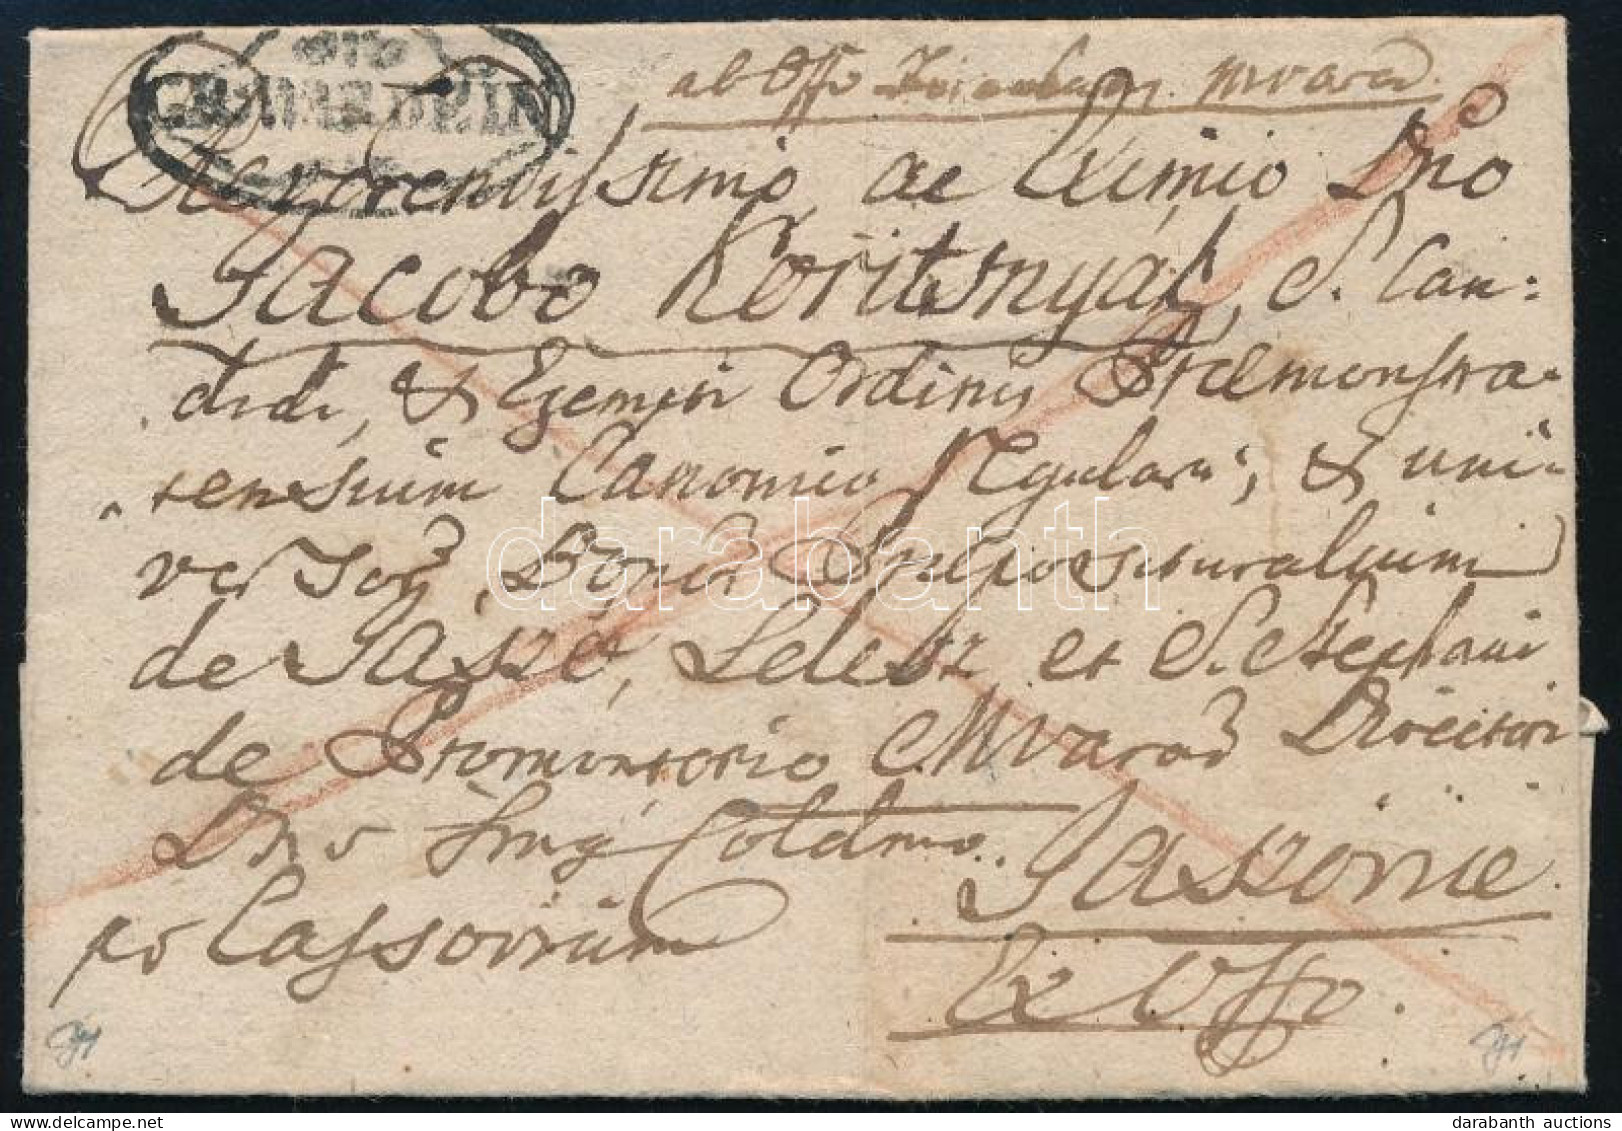 VON
GROSWARDEIN
ab Offo Tricesimae MVarad.
Reverendissimo, ac Eximio Dno
Jacobo Koritsnyák, S. Can=
didi, & Exempti Ordinis Praemonstra=
tensium Canonico Regulari, & uni=
versor, Bonor Praeposituralium
de Jászó, Lelesz et S. Stephani
de Promontorio MVarad Directori
Dno mihi Coldmo.
Jaszoviae
pr Cassoviam
Ex Offo.
darabanth
darabanth auctions